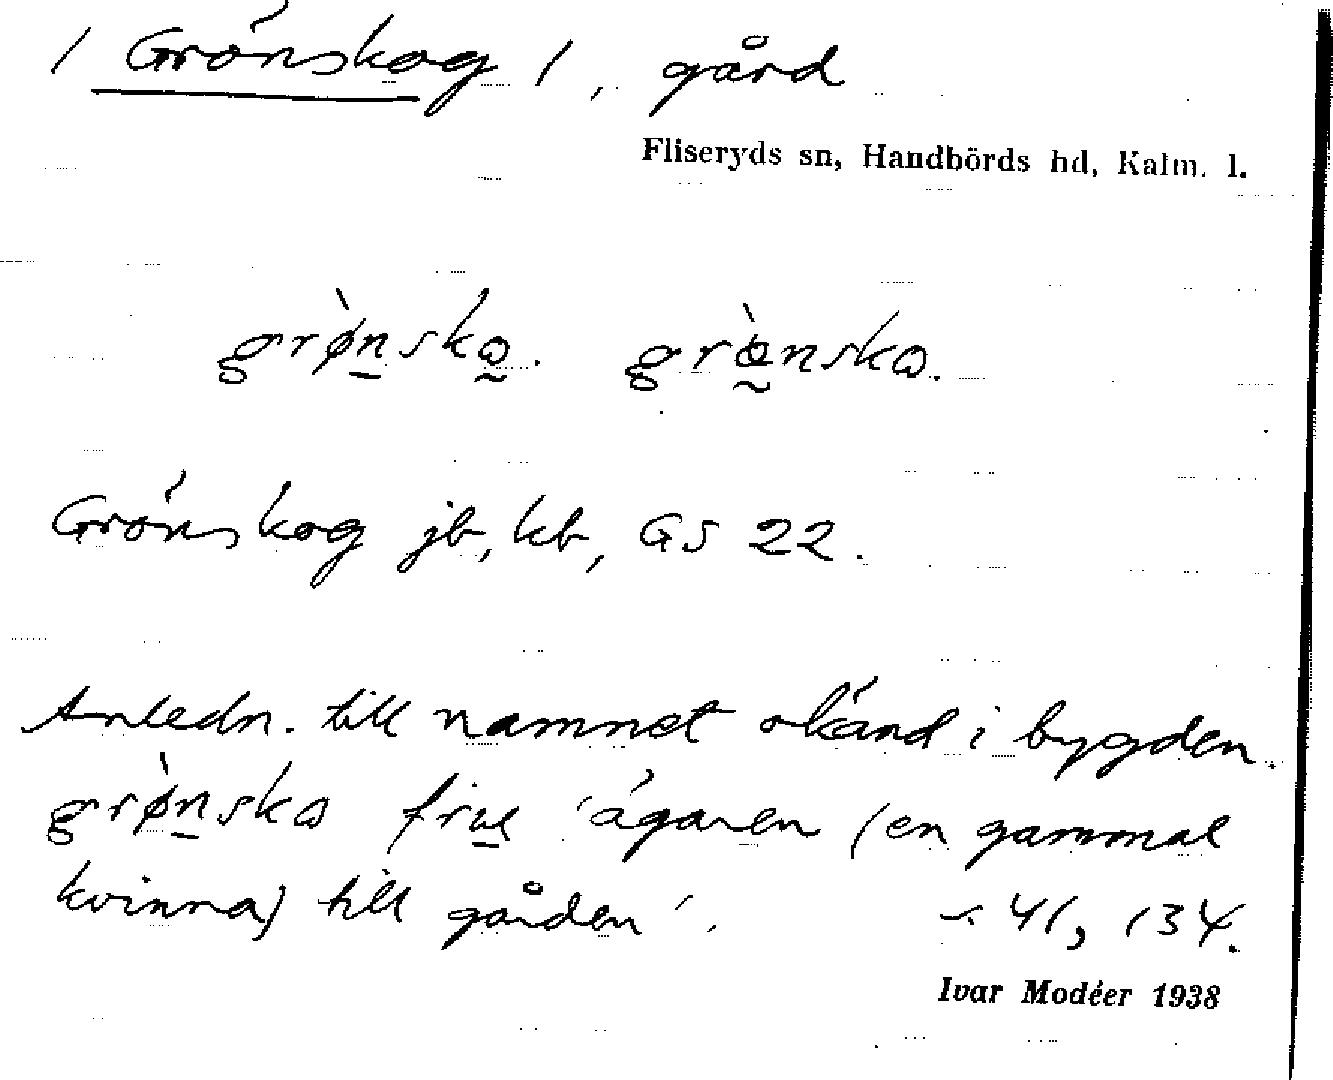 / Grönskog /, gård
Fliseryds sn, Handbörds hd, Kalm. l.
grø̀nskɷ. grœ̀nskɷ.
Grönskog jb, kb, GS 22.
Anledn. till namnet okänd i bygden.
grø̀nskɷ frua 'ägaren (en gammal
kvinna) till gården'. s. 41, 134.
Ivar Modéer 1938